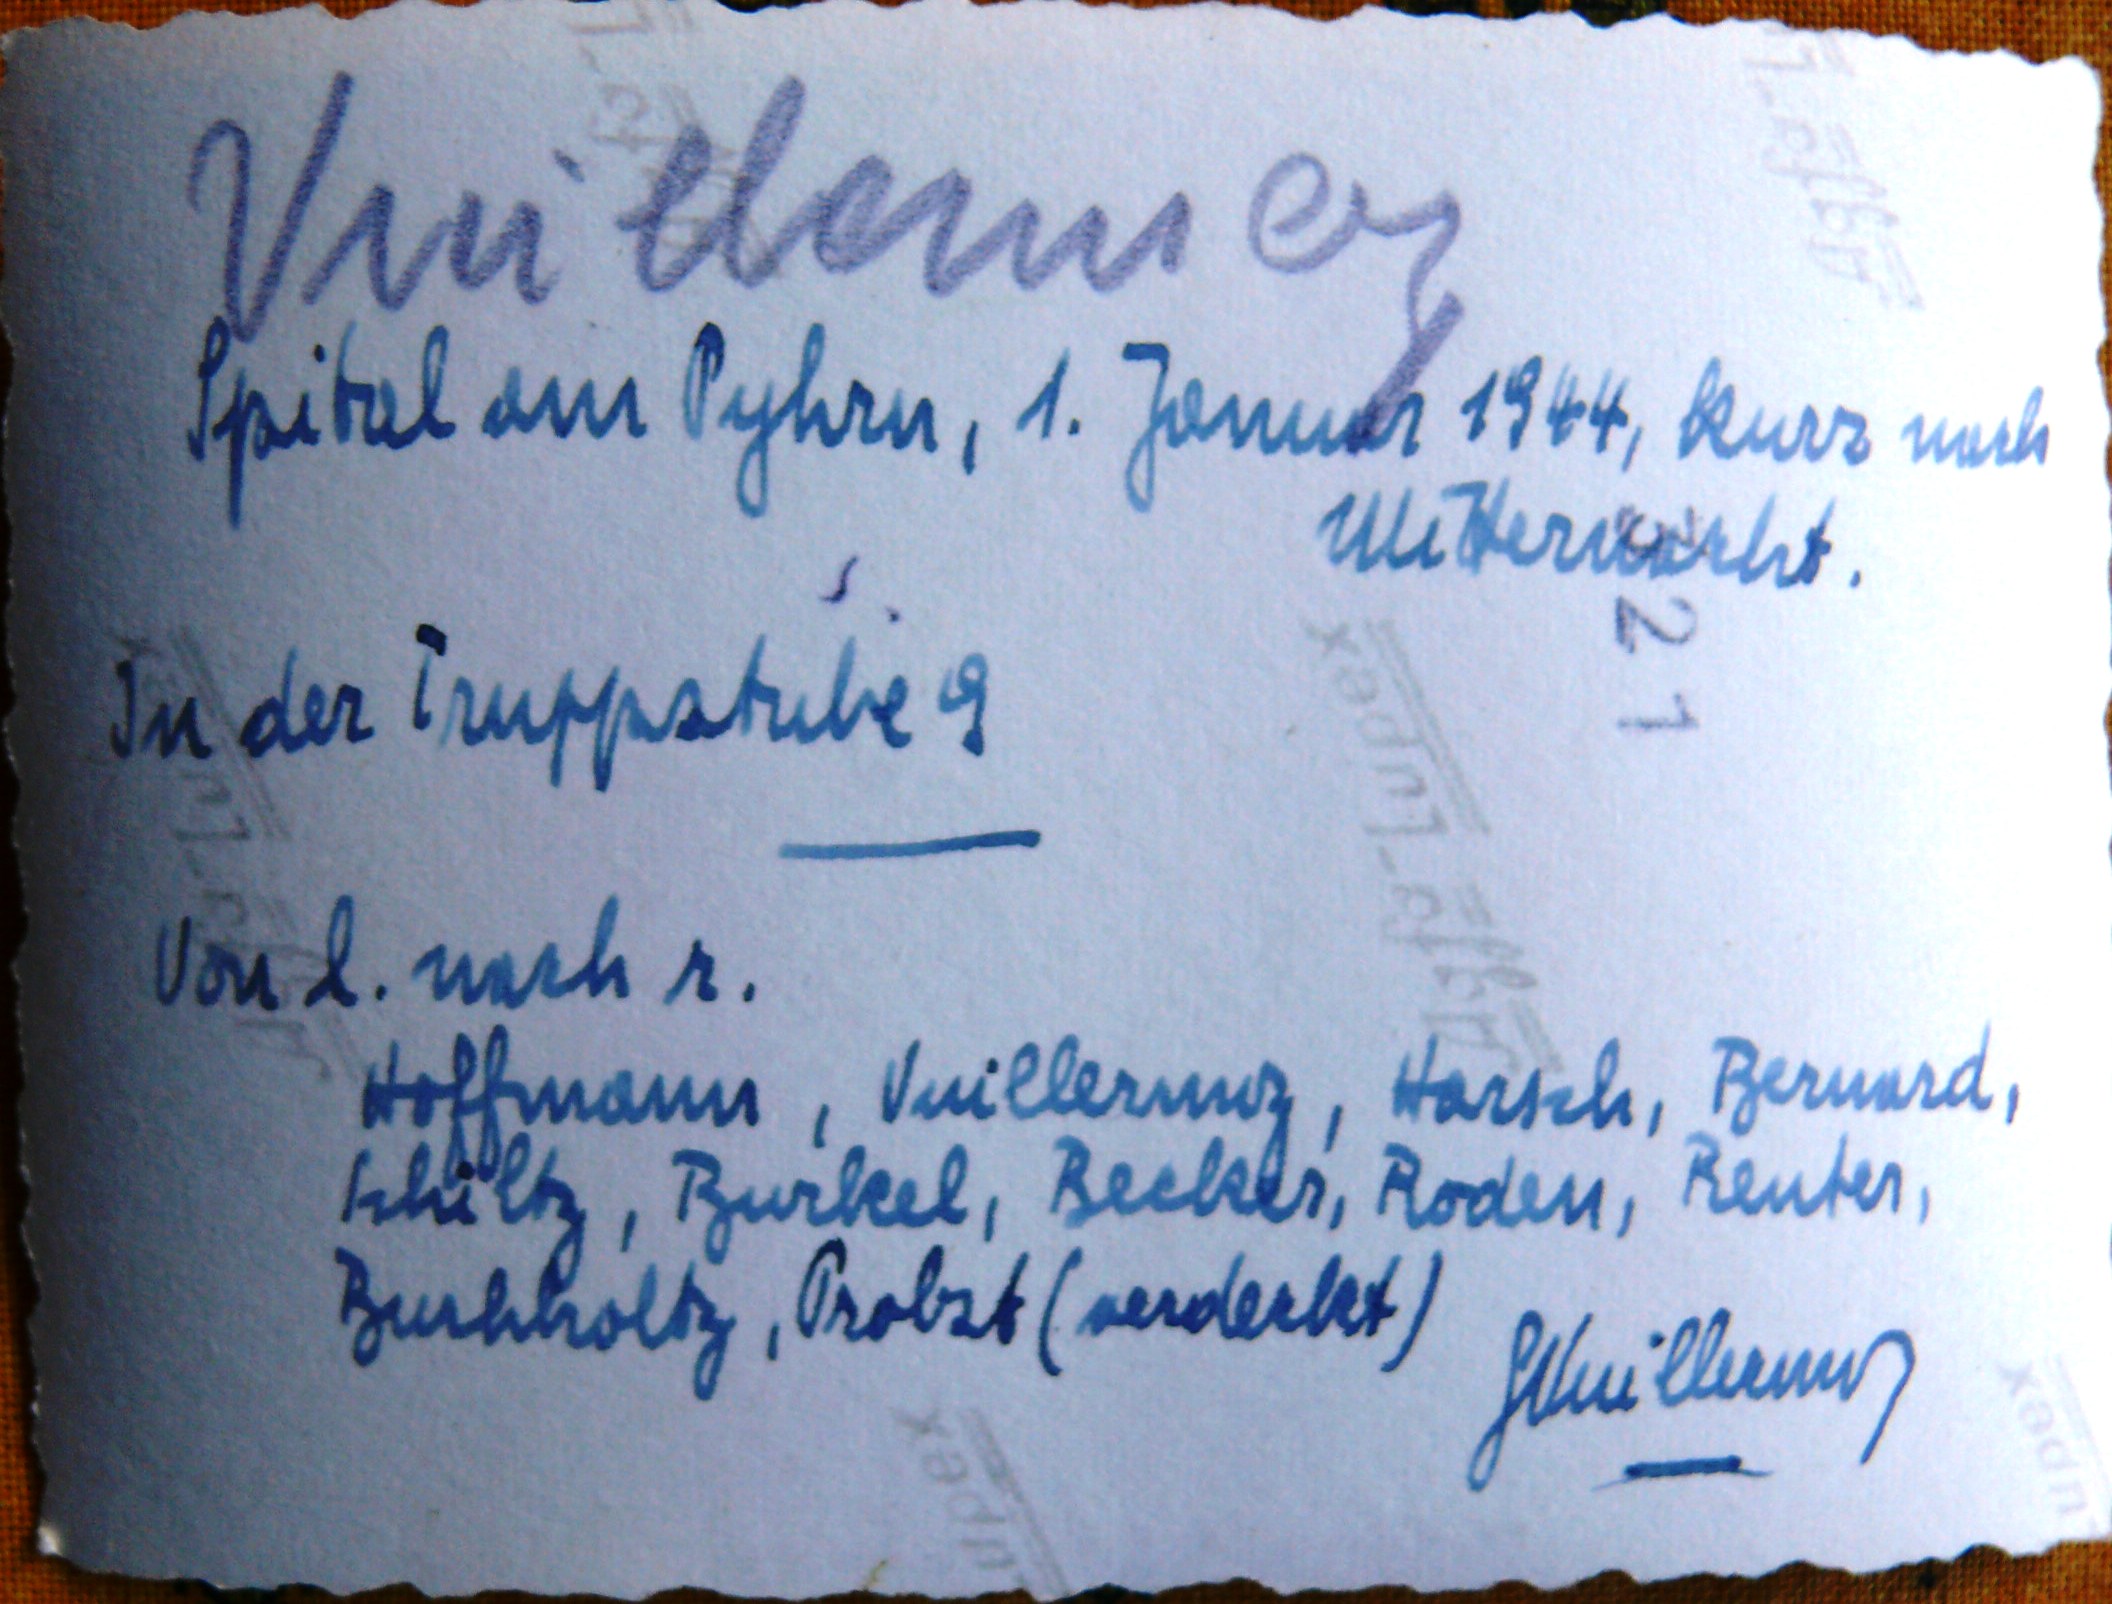 Vuillermoz
Spital am Pyhrn, 1. Januar 1944, kurz nach
Mitternacht.
321
In der Truppstube 9
Von l. nach r.
Hoffmann, Vuillermoz, Harsch, Bernard,
Schiltz, Burkel, Becker, Roden, Reuter,
Buchholtz, Probst (verdeckt)
GVuillermoz
Agfa-Lupex
Agfa-Lupex
Agfa-Lupex